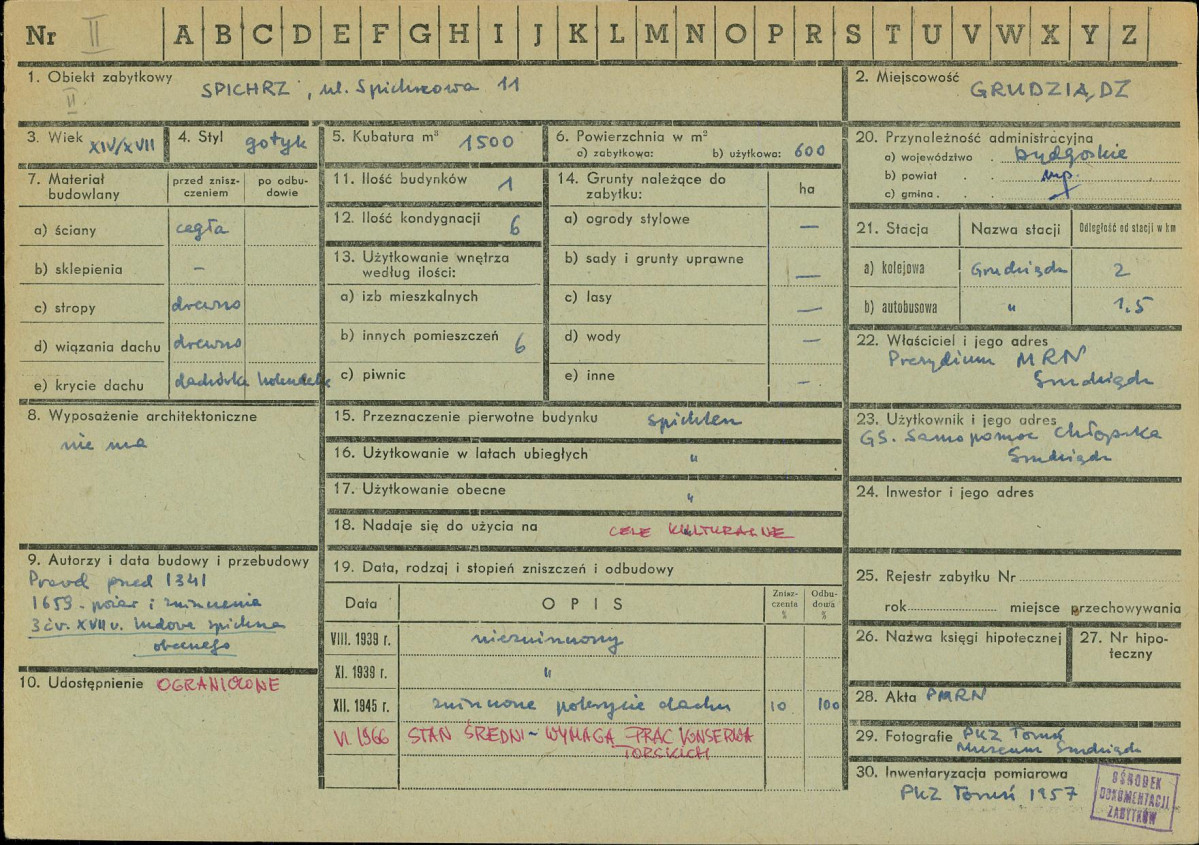 Nr II A B C D E F G H I J K L M N O P R S T U V W X Y Z
1. Obiekt zabytkowy SPICHRZ, ul. Spichrzowa 11
II
2. Miejscowość GRUDZIĄDZ
3. Wiek XIV/XVII
4. Styl gotyk
5. Kubatura m³ 1500
6. Powierzchnia w m²
a) zabytkowa: b) użytkowa: 600
7. Materiał budowlany
przed znisz-
czeniem
po odbu-
dowie
a) ściany cegła
b) sklepienia –
c) stropy drewno
d) wiązania dachu drewno
e) krycie dachu dachówka holenderka
8. Wyposażenie architektoniczne
nie ma
9. Autorzy i data budowy i przebudowy
Prawd przed 1341
1659. pożar i zniszczenia
3 ćw. XVII w. budowa spichrza
obecnego
10. Udostępnienie OGRANICZONE
11. Ilość budynków 1
12. Ilość kondygnacji 6
13. Użytkowanie wnętrza
według ilości:
a) izb mieszkalnych
b) innych pomieszczeń 6
c) piwnic
14. Grunty należące do
zabytku:
ha
a) ogrody stylowe –
b) sady i grunty uprawne –
c) lasy –
d) wody –
e) inne –
15. Przeznaczenie pierwotne budynku spichlerz
16. Użytkowanie w latach ubiegłych "
17. Użytkowanie obecne "
18. Nadaje się do użycia na CELE KULTURALNE
19. Data, rodzaj i stopień zniszczeń i odbudowy
Data OPIS Znisz-
czenia
%
Odbu-
dowa
%
VIII. 1939 r. niezniszczony
XI. 1939 r. "
XII. 1945 r. zniszczone pokrycie dachu 10 100
VI 1966 STAN ŚREDNI – WYMAGA PRAC KONSERWA
TORSKICH
20. Przynależność administracyjna
a) województwo bydgoskie
b) powiat mp.
c) gmina
21. Stacja Nazwa stacji Odległość od stacji w km
a) kolejowa Grudziądz 2
b) autobusowa " 1,5
22. Właściciel i jego adres
Prezydium MRN
Grudziądz
23. Użytkownik i jego adres
GS. Samopomoc Chłopska
Grudziądz
24. Inwestor i jego adres
25. Rejestr zabytku Nr
rok miejsce przechowywania
26. Nazwa księgi hipotecznej
27. Nr hipo-
teczny
28. Akta PMRN
29. Fotografie PKZ Toruń
Muzeum Grudziądz
30. Inwentaryzacja pomiarowa
PKZ Toruń 1957
OŚRODEK
DOKUMENTACJI
ZABYTKÓW